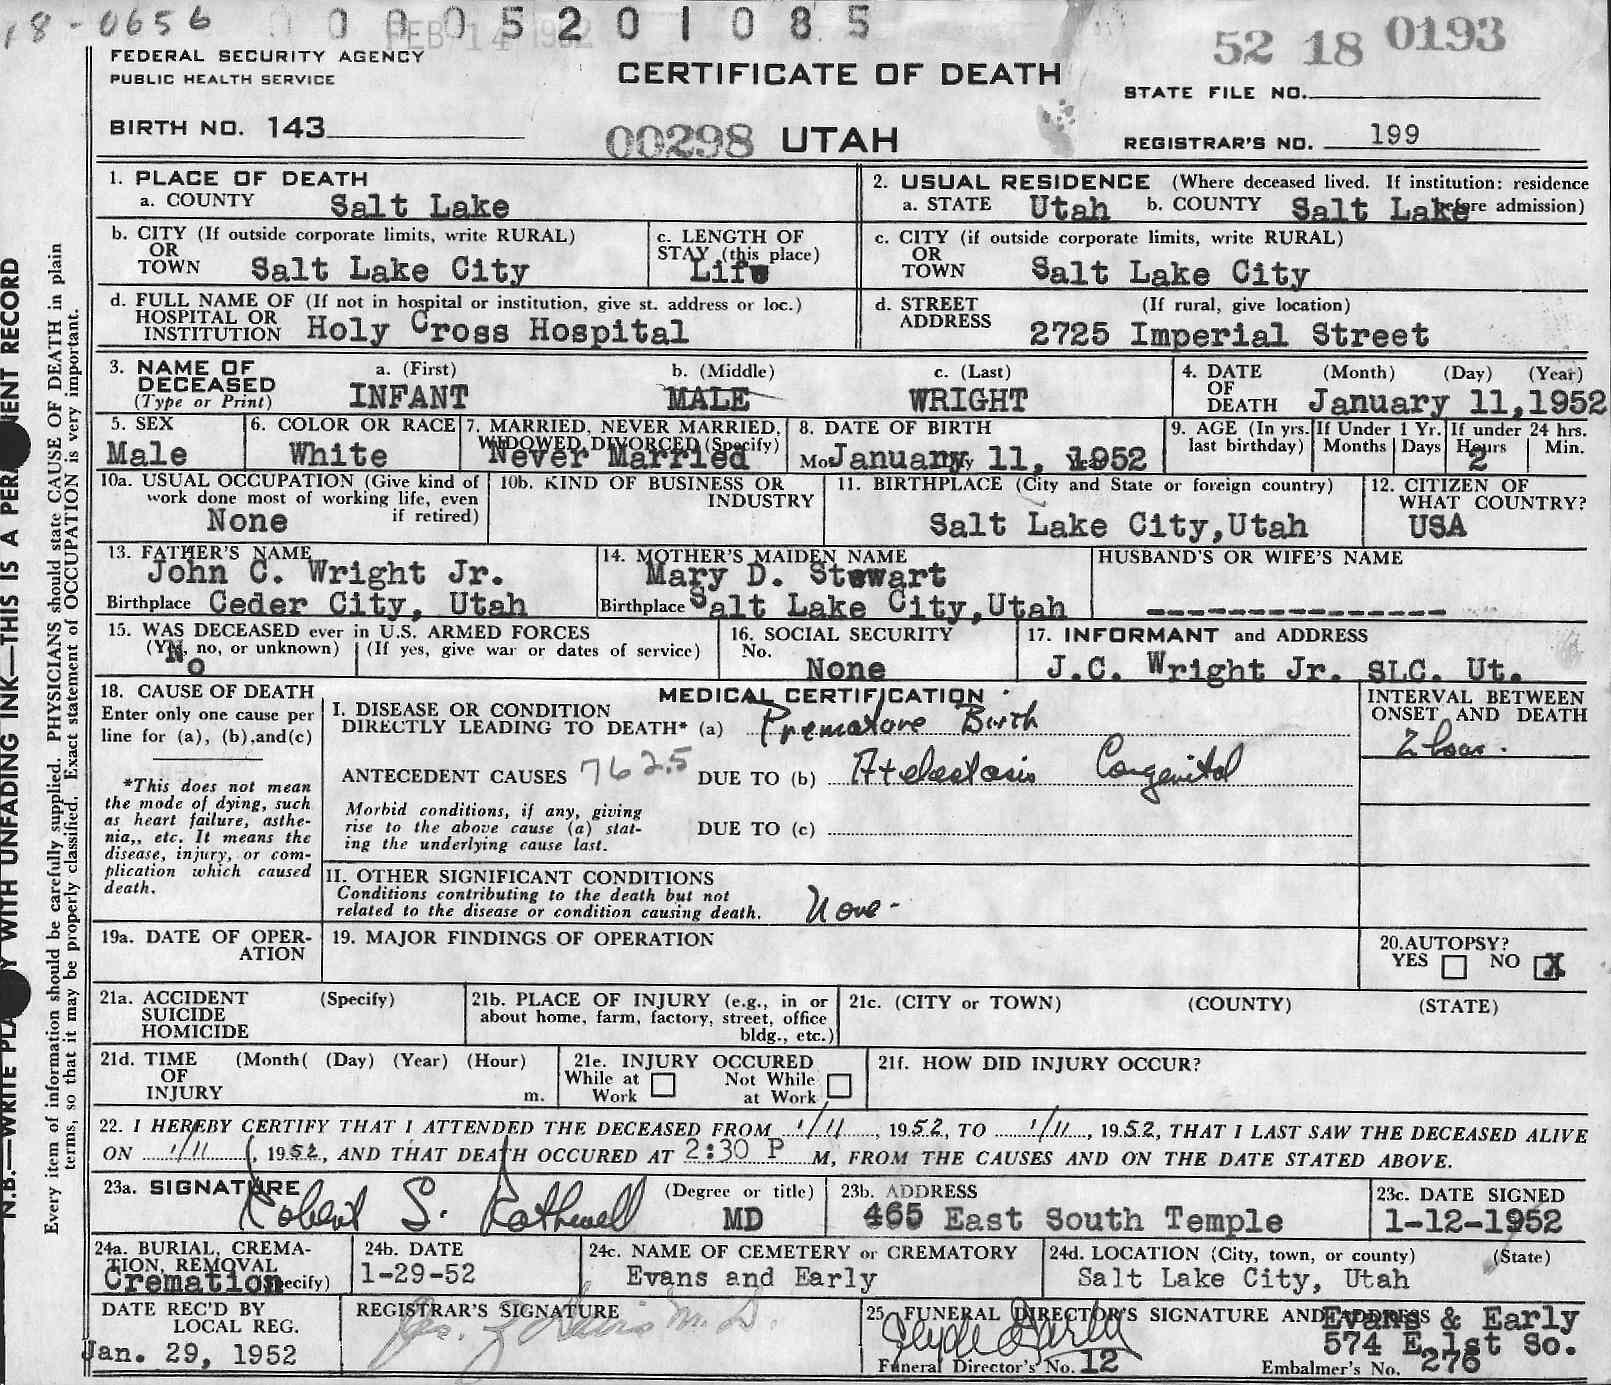 18-0656 0005201085
FEB 14 1952
52 18 0193
FEDERAL SECURITY AGENCY
PUBLIC HEALTH SERVICE
CERTIFICATE OF DEATH
STATE FILE NO.
BIRTH NO. 143
00298 UTAH
REGISTRAR'S NO. 199
1. PLACE OF DEATH
a. COUNTY Salt Lake
2. USUAL RESIDENCE (Where deceased lived. If institution: residence before admission)
a. STATE Utah b. COUNTY Salt Lake
b. CITY (If outside corporate limits, write RURAL)
OR
TOWN Salt Lake City
c. LENGTH OF
STAY (this place)
Life
c. CITY (if outside corporate limits, write RURAL)
OR
TOWN Salt Lake City
d. FULL NAME OF (If not in hospital or institution, give st. address or loc.)
HOSPITAL OR
INSTITUTION Holy Cross Hospital
d. STREET (If rural, give location)
ADDRESS 2725 Imperial Street
3. NAME OF
DECEASED
(Type or Print)
a. (First) b. (Middle) c. (Last)
INFANT MALE WRIGHT
4. DATE (Month) (Day) (Year)
OF
DEATH January 11,1952
5. SEX
Male
6. COLOR OR RACE
White
7. MARRIED, NEVER MARRIED,
WIDOWED, DIVORCED (Specify)
Never Married
8. DATE OF BIRTH
January 11, 1952
9. AGE (In yrs. last birthday)
If Under 1 Yr. Months Days
If under 24 hrs. Hours Min.
2
10a. USUAL OCCUPATION (Give kind of
work done most of working life, even
if retired)
None
10b. KIND OF BUSINESS OR
INDUSTRY
11. BIRTHPLACE (City and State or foreign country)
Salt Lake City,Utah
12. CITIZEN OF
WHAT COUNTRY?
USA
13. FATHER'S NAME
John C. Wright Jr.
Birthplace Ceder City, Utah
14. MOTHER'S MAIDEN NAME
Mary D. Stewart
Birthplace Salt Lake City,Utah
HUSBAND'S OR WIFE'S NAME
---------------
15. WAS DECEASED ever in U.S. ARMED FORCES
(Yes, no, or unknown) (If yes, give war or dates of service)
No
16. SOCIAL SECURITY
No.
None
17. INFORMANT and ADDRESS
J.C. Wright Jr. SLC. Ut.
18. CAUSE OF DEATH
Enter only one cause per
line for (a), (b),and(c)
*This does not mean
the mode of dying, such
as heart failure, asthe-
nia,, etc. It means the
disease, injury, or com-
plication which caused
death.
MEDICAL CERTIFICATION
I. DISEASE OR CONDITION
DIRECTLY LEADING TO DEATH* (a) Premature Birth
ANTECEDENT CAUSES 762.5 DUE TO (b) Atelectasis Congenital
Morbid conditions, if any, giving
rise to the above cause (a) stat-
ing the underlying cause last.
DUE TO (c)
INTERVAL BETWEEN
ONSET AND DEATH
2 hour.
II. OTHER SIGNIFICANT CONDITIONS
Conditions contributing to the death but not
related to the disease or condition causing death.
None-
19a. DATE OF OPER-
ATION
19. MAJOR FINDINGS OF OPERATION
20.AUTOPSY?
YES NO X
21a. ACCIDENT (Specify)
SUICIDE
HOMICIDE
21b. PLACE OF INJURY (e.g., in or
about home, farm, factory, street, office
bldg., etc.)
21c. (CITY or TOWN) (COUNTY) (STATE)
21d. TIME (Month( (Day) (Year) (Hour)
OF
INJURY m.
21e. INJURY OCCURED
While at Work
Not While at Work
21f. HOW DID INJURY OCCUR?
22. I HEREBY CERTIFY THAT I ATTENDED THE DECEASED FROM 1/11, 1952, TO 1/11, 1952, THAT I LAST SAW THE DECEASED ALIVE
ON 1/11, 1952, AND THAT DEATH OCCURED AT 2:30 P M, FROM THE CAUSES AND ON THE DATE STATED ABOVE.
23a. SIGNATURE (Degree or title)
Robert S. Rothwell MD
23b. ADDRESS
465 East South Temple
23c. DATE SIGNED
1-12-1952
24a. BURIAL, CREMA-
TION, REMOVAL
(Specify)
Cremation
24b. DATE
1-29-52
24c. NAME OF CEMETERY or CREMATORY
Evans and Early
24d. LOCATION (City, town, or county) (State)
Salt Lake City, Utah
DATE REC'D BY
LOCAL REG.
Jan. 29, 1952
REGISTRAR'S SIGNATURE
Davis M.D.
25 FUNERAL DIRECTOR'S SIGNATURE AND ADDRESS
Evans & Early
574 E 1st So.
Funeral Director's No. 12
Embalmer's No. 276
N.B.—WRITE PLAINLY WITH UNFADING INK—THIS IS A PERMANENT RECORD
Every item of information should be carefully supplied. PHYSICIANS should state CAUSE OF DEATH in plain
terms, so that it may be properly classified. Exact statement of OCCUPATION is very important.